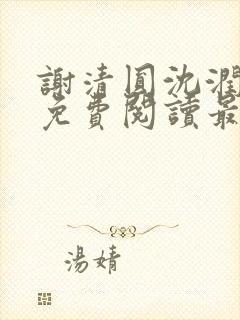 謝清圓沈潤
免費閱讀最
湯婧